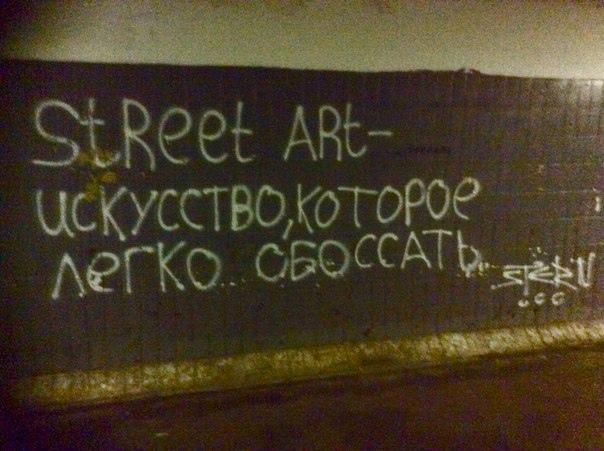 Street Art-
искусство, которое
легко обоссать